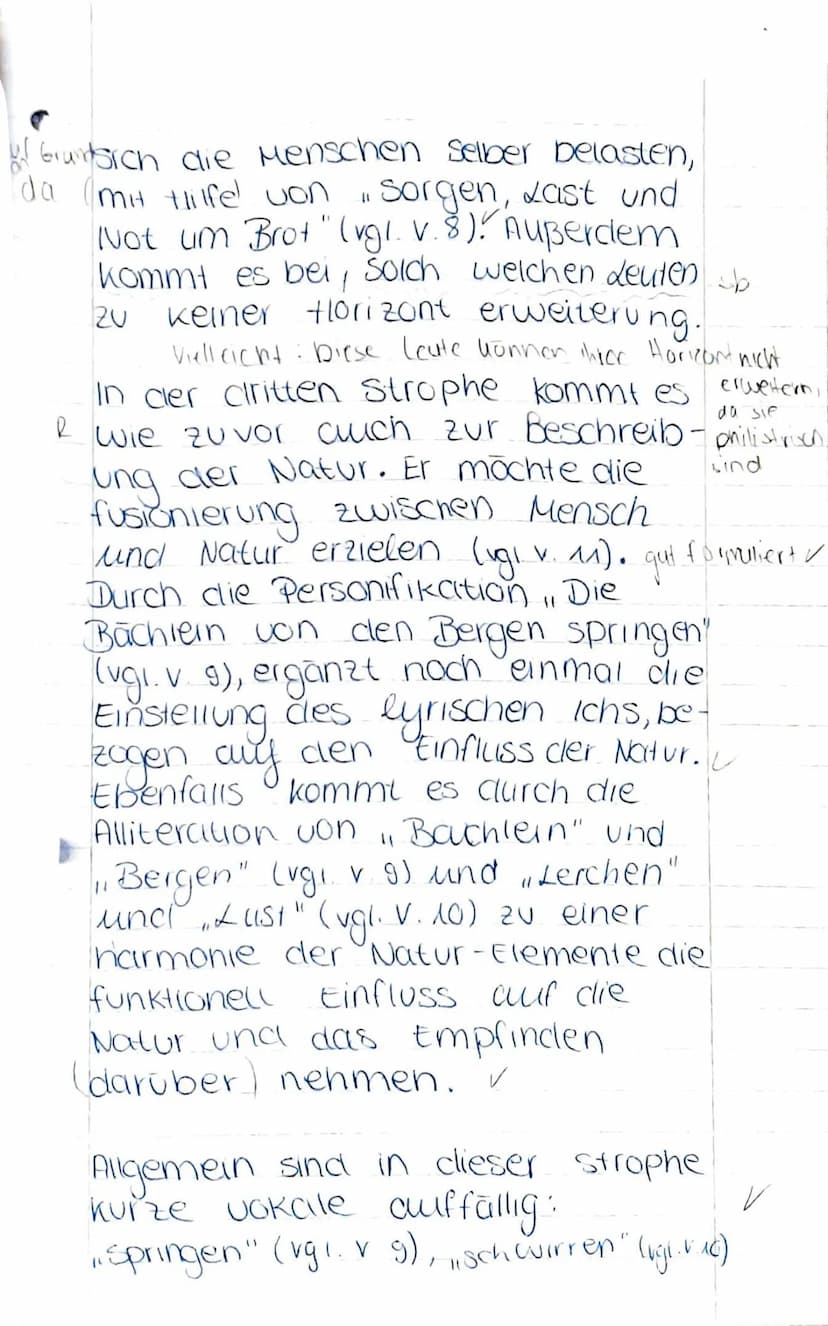 sich die Menschen selber belasten,
da (mit Hilfe von „Sorgen, Last und
Not um Brot" (vgl. V. 8)! Außerdem
kommt es bei, solch welchen Leuten
zu keiner Horizont erweiterung.
Vielleicht: Diese Leute können ihren Horizont nicht
erweitern,
da sie
philistrisch
sind
In der dritten Strophe kommt es
R wie zuvor auch zur Beschreib-
ung der Natur. Er möchte die
fusionierung zwischen Mensch
und Natur erzielen (vgl. V. 11). gut formuliert ✓
Durch die Personifikation „Die
Bächlein von den Bergen springen"
(vgl. V 9), ergänzt noch einmal die
Einstellung des lyrischen Ichs, be-
zogen auf den Einfluss der Natur. ✓
Ebenfalls kommt es durch die
Alliteration von „Bächlein" und
„Bergen" (vgl. V 9) und „Lerchen"
und „Lust" (vgl. V. 10) zu einer
harmonie der Natur-Elemente die
funktionell Einfluss auf die
Natur und das Empfinden
(darüber) nehmen. ✓
Allgemein sind in dieser Strophe
kurze Vokale auffällig: ✓
„springen" (vgl. V 9), „schwirren" (vgl. V 10)